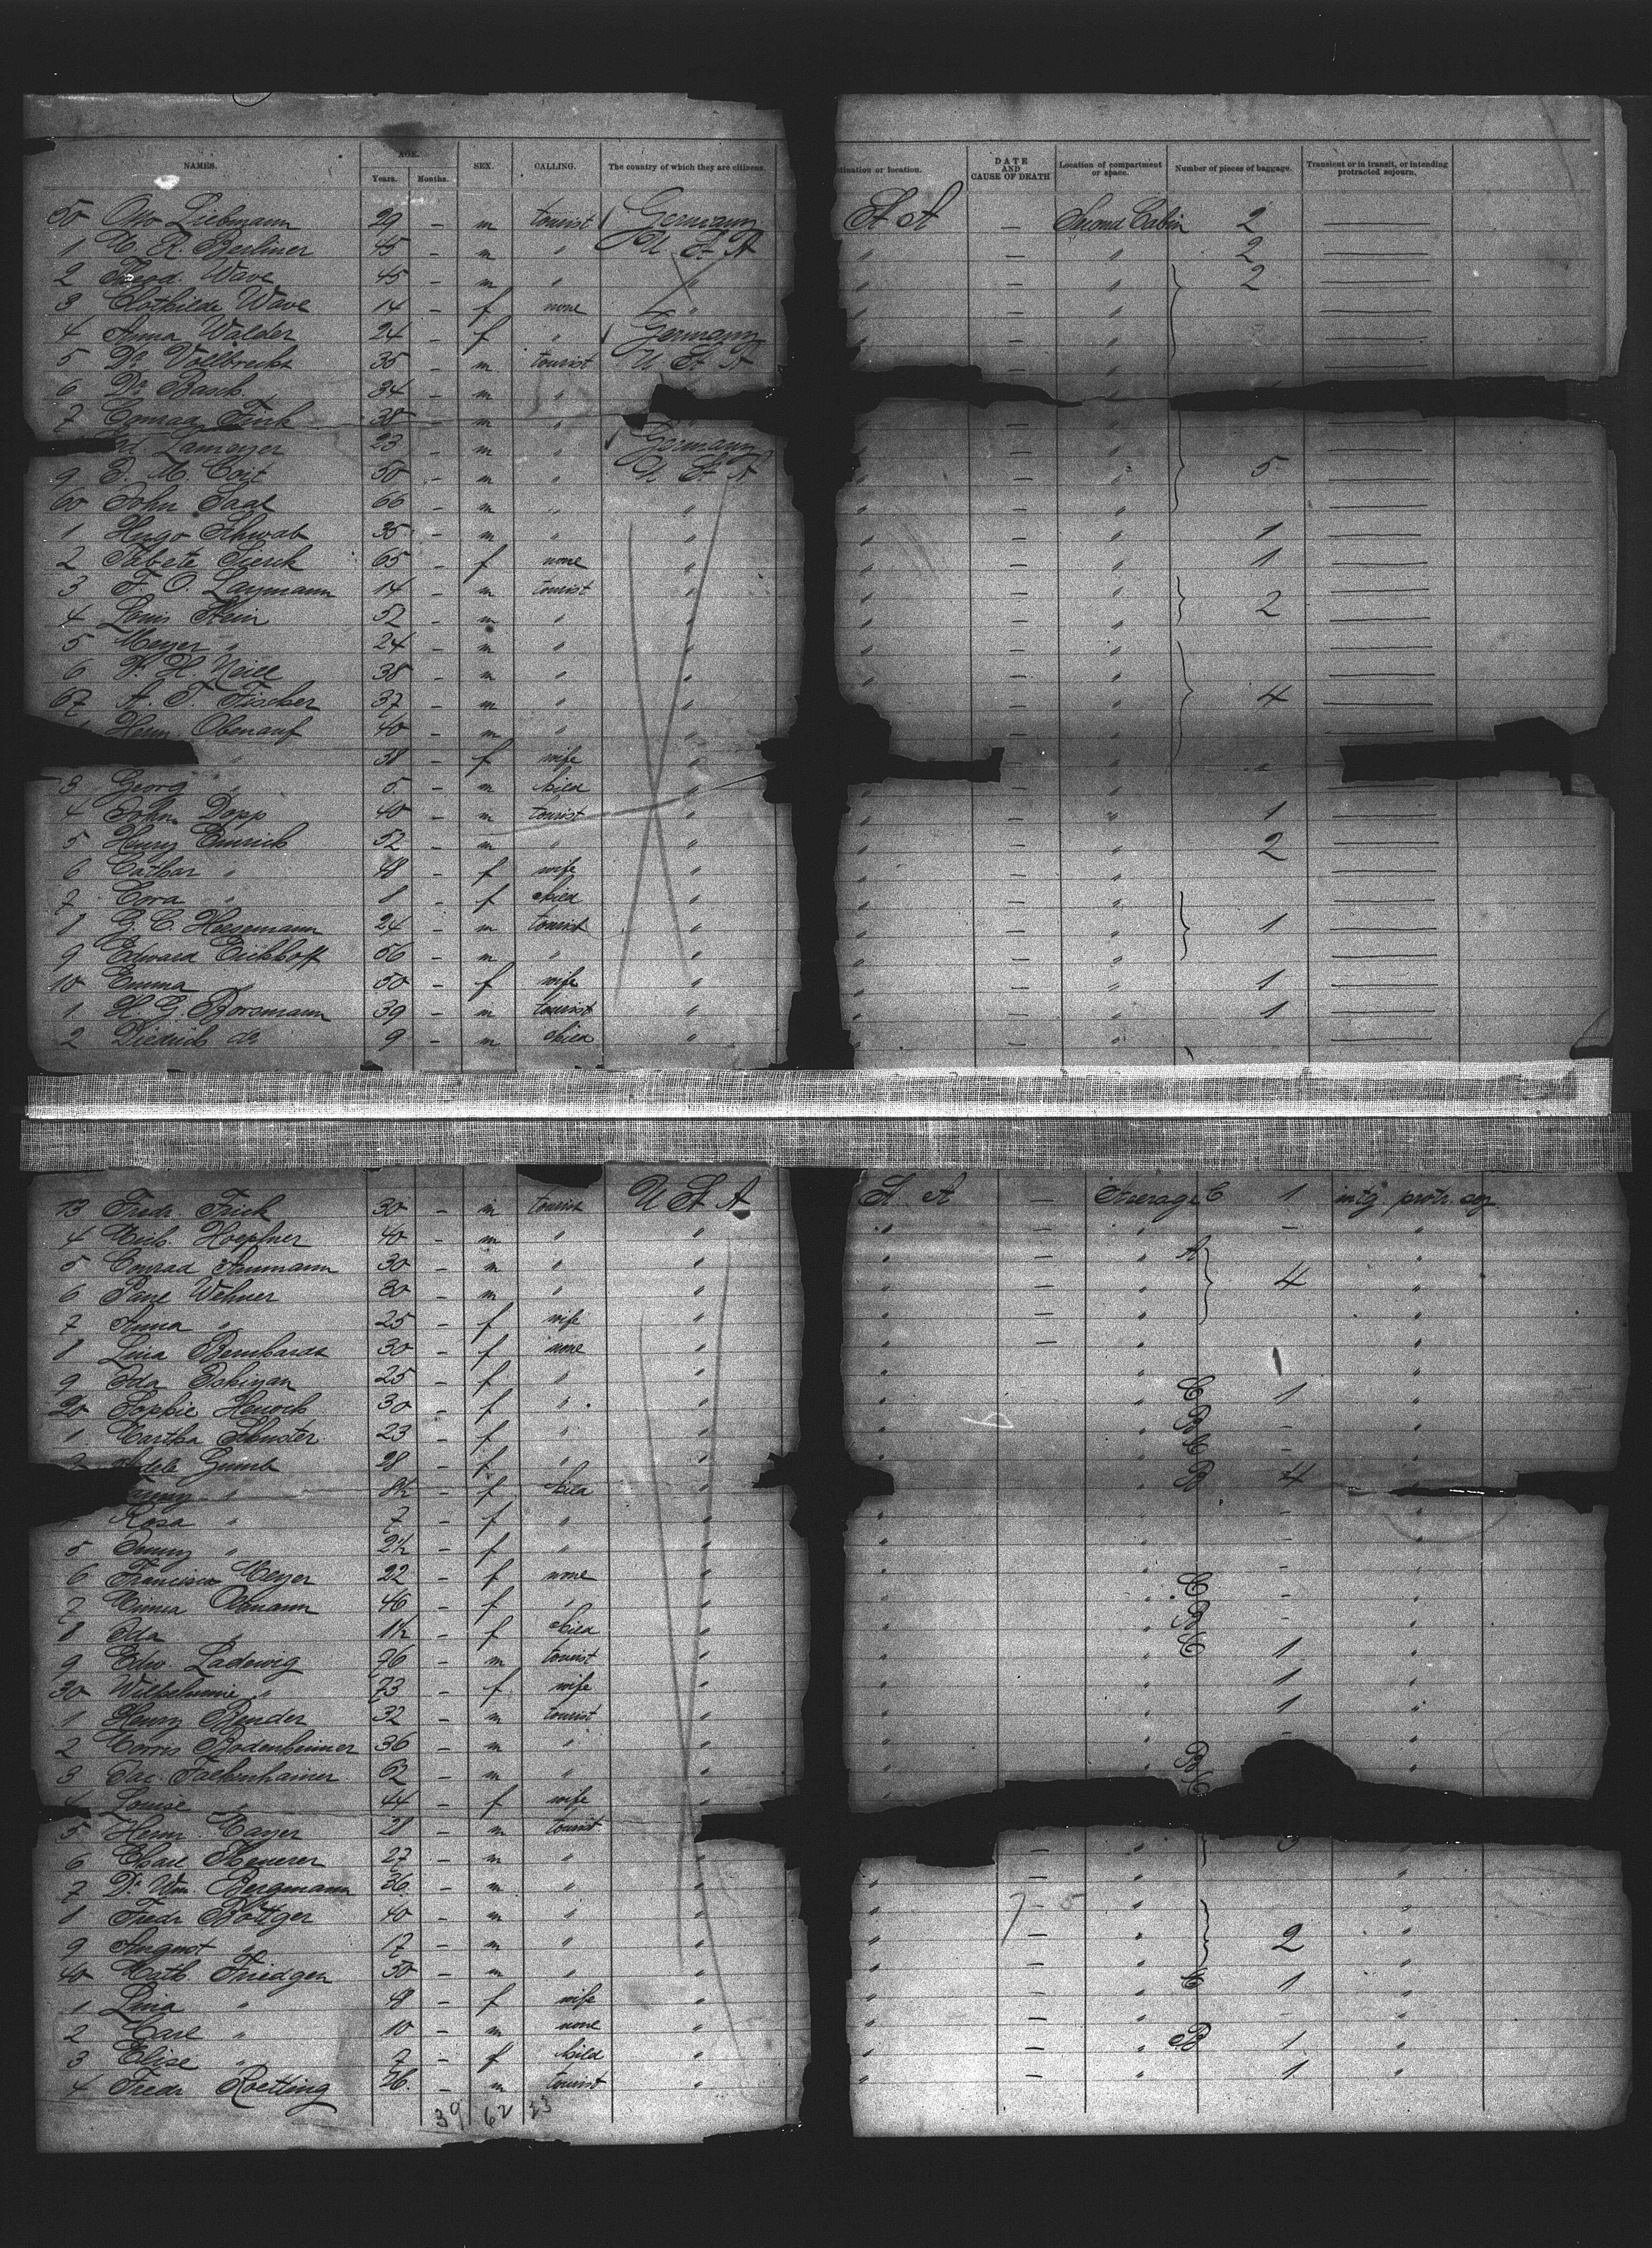 NAMES. AGE. SEX. CALLING. The country of which they are citizens. tination or location. DATE AND CAUSE OF DEATH Location of compartment or space. Number of pieces of baggage. Transient or in transit, or intending protracted sojourn.
Years. Months.
50 Otto Liebmann 29 - m tourist Germany St A Second Cabin 2
1 R. Berliner 45 - m " U St A — " 2
2 Theod. Wave 45 - m " " — " 2
3 Clothilde Wave 14 - f none " — "
4 Anna Walder 24 - f " Germany — "
5 Dr Vollbrecht 35 - m tourist U St A —
6 Dr Basch. 34 - m "
7 Conrad Frick 38 - m " " —
d. Lameyer 23 - m " Germany " — "
9 D. M. Coit 50 - m " U St A " — " 5
60 John Saal 66 - m " " " — "
1 Hugo Schwab 35 - m " " " — " 1
2 Babete Sierck 65 - f none " " — " 1
3 F. O. Laymann 14 - m tourist " " — "
4 Louis Stein 52 - m " " " — " 2
5 Meyer " 24 - m " " " — "
6 H. Neill 38 - m " " " — "
67 A. T. Fischer 37 - m " " " — " 4
Herm. Obenauf 40 - m " " — "
" 38 - f wife " — "
3 Georg " 5 - m child " " — "
4 John Dopp 40 - m tourist " " — " 1
5 Henry Emrich 52 - m " " " — " 2
6 Cathar " 48 - f wife " " — "
7 Cora " 8 - f child " " — "
8 G. C. Hoesemann 24 - m tourist " " — " 1
9 Edward Eickhoff 56 - m " " " — "
10 Emma " 50 - f wife " " — " 1
1 H. G. Borsmann 39 - m tourist " " — " 1
2 Diedrich do 9 - m child " " — "
13 Fredr. Frick 30 - m tourist U St A St. A — Steerage C 1 intg protr. soj
4 Hoepfner 40 - m " " " — " — "
5 Conrad Naumann 30 - m " " " — " A
6 Paul Wehner 30 - m " " " — " 4 "
7 Anna " 25 - f wife " " — " "
8 Lina Bernhardt 30 - f none " " — " "
9 Ida 25 - f " " " " "
20 Sophie Henoch 30 - f " " " " C 1 "
1 Martha Schuster 23 - f " " " " B - "
Adele Gumb 28 - f " " " C - "
" 8½ - f child " " " B 4 "
Rosa " 7 - f " " " " - "
5 Jenny " 2½ - f " " " " - "
6 Francisca Meyer 22 - f none " " " - "
7 Emma Assmann 46 - f " " " " C - "
8 Ida " 1½ - f child " " " B - "
9 Edw. Ladewig 76 - m tourist " " " C 1 "
30 Wilhelmine " 73 - f wife " " " 1 "
1 Henry Bender 32 - m tourist " " " 1 "
2 Morris Bodenheimer 36 - m " " " " - "
3 Jac. Falkenhainer 62 - m " " " " B "
4 Louise " 44 - f wife " C
5 Herm. Mayer 21 - m tourist
6 Charl. 27 - m " " — " "
7 Dr. Wm. Bergmann 36 - m " " " — " "
8 Fredr Böttger 40 - m " " " — " "
9 August " 17 - m " " " — " 2 "
40 Math. Friedgen 50 - m " " " — " C 1 "
1 Lina " 48 - f wife " " — " - "
2 Carl " 10 - m none " " — " B 1 "
3 Elise " 7 - f child " " — " 1 "
4 Fredr Roetting 26. - m tourist "
39 62 33